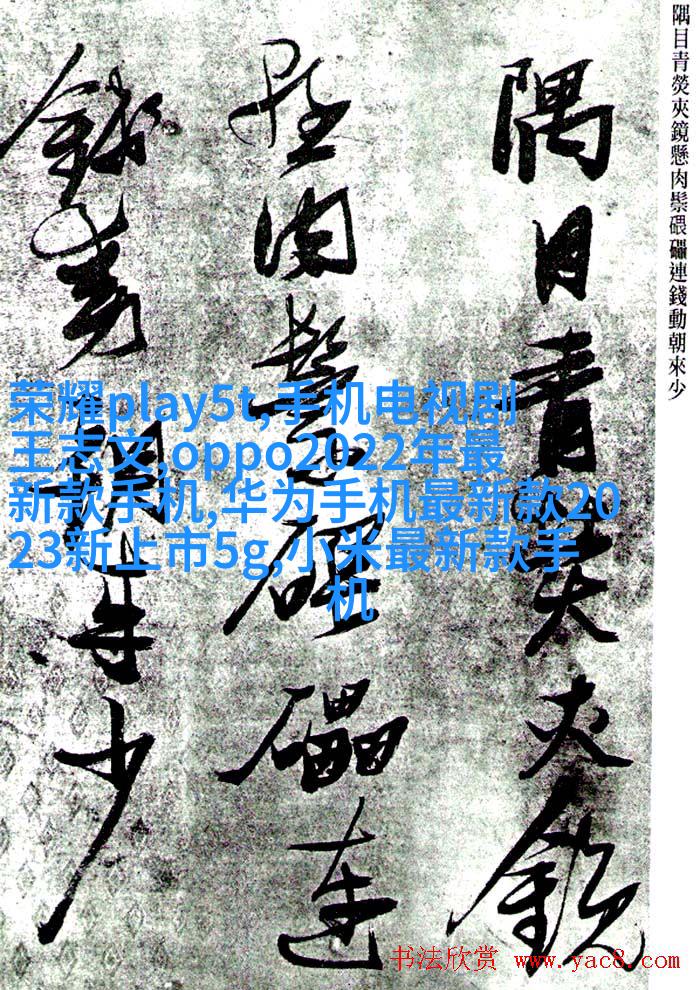 隅目青熒夾鏡懸肉鬃碨礧連錢動朝來少
隅目青熒夾鏡
懸肉鬃碨礧連
錢動朝來少
荣耀play5t,手机电视剧
王志文,oppo2022年最
新款手机,华为手机最新款20
23新上市5g,小米最新款手
机
书法欣赏 www.yac8.com